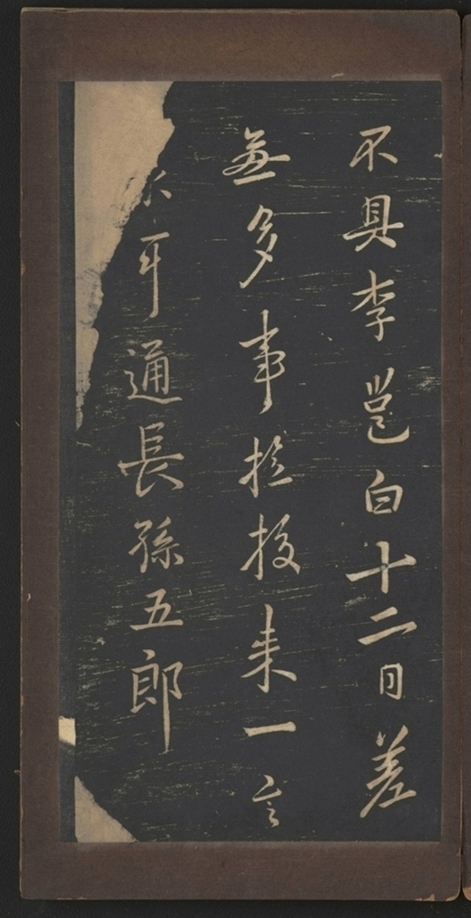 不具李邕白十二日差
無多事於投来一言
耳通長孫五郎